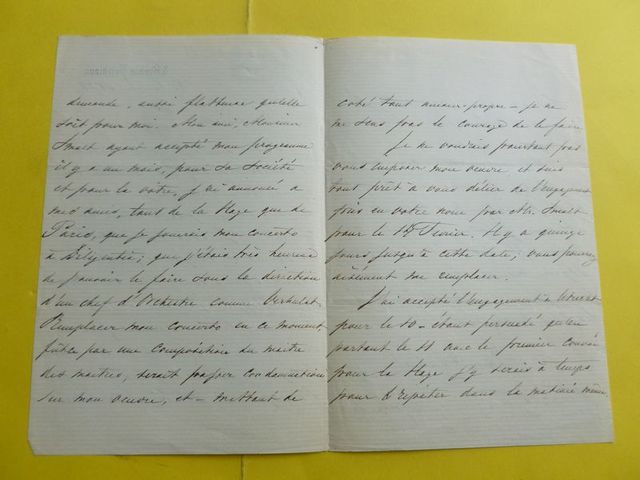 demande, aussi flatteuse qu'elle
soit pour moi. Mon ami, Monsieur
Smalt ayant accepté mon programme
il y a un mois, pour sa Société
et pour la votre, j'ai annoncé à
mes amis, tant de la Haye que de
Paris, que je jouerais mon concerto
à Diligentia; que j'étais très heureux
de pouvoir le faire sous la direction
d'un chef d'Orchestre comme Verhulst.
Remplacer mon concerto en ce moment
fût-ce par une composition du maitre
des maitres, serait passer condamnation
sur mon œuvre, et – mettant de
coté tout amour-propre – je ne
me sens pas le courage de le faire.
Je ne voudrais pourtant pas
vous imposer mon œuvre, et suis
tout prêt à vous délier de l'engagement
pris en votre nom par Mr. Smalt
pour le Février. Il y a quinze
jours jusqu'à cette date; vous pourrez
aisément me remplacer.
J'ai accepté l'engagement à Utrecht
pour le 10 – étant persuadé qu'en
partant le 11 avec le premier convoi
pour la Haye j'y serais à temps
pour répéter dans la matinée même.